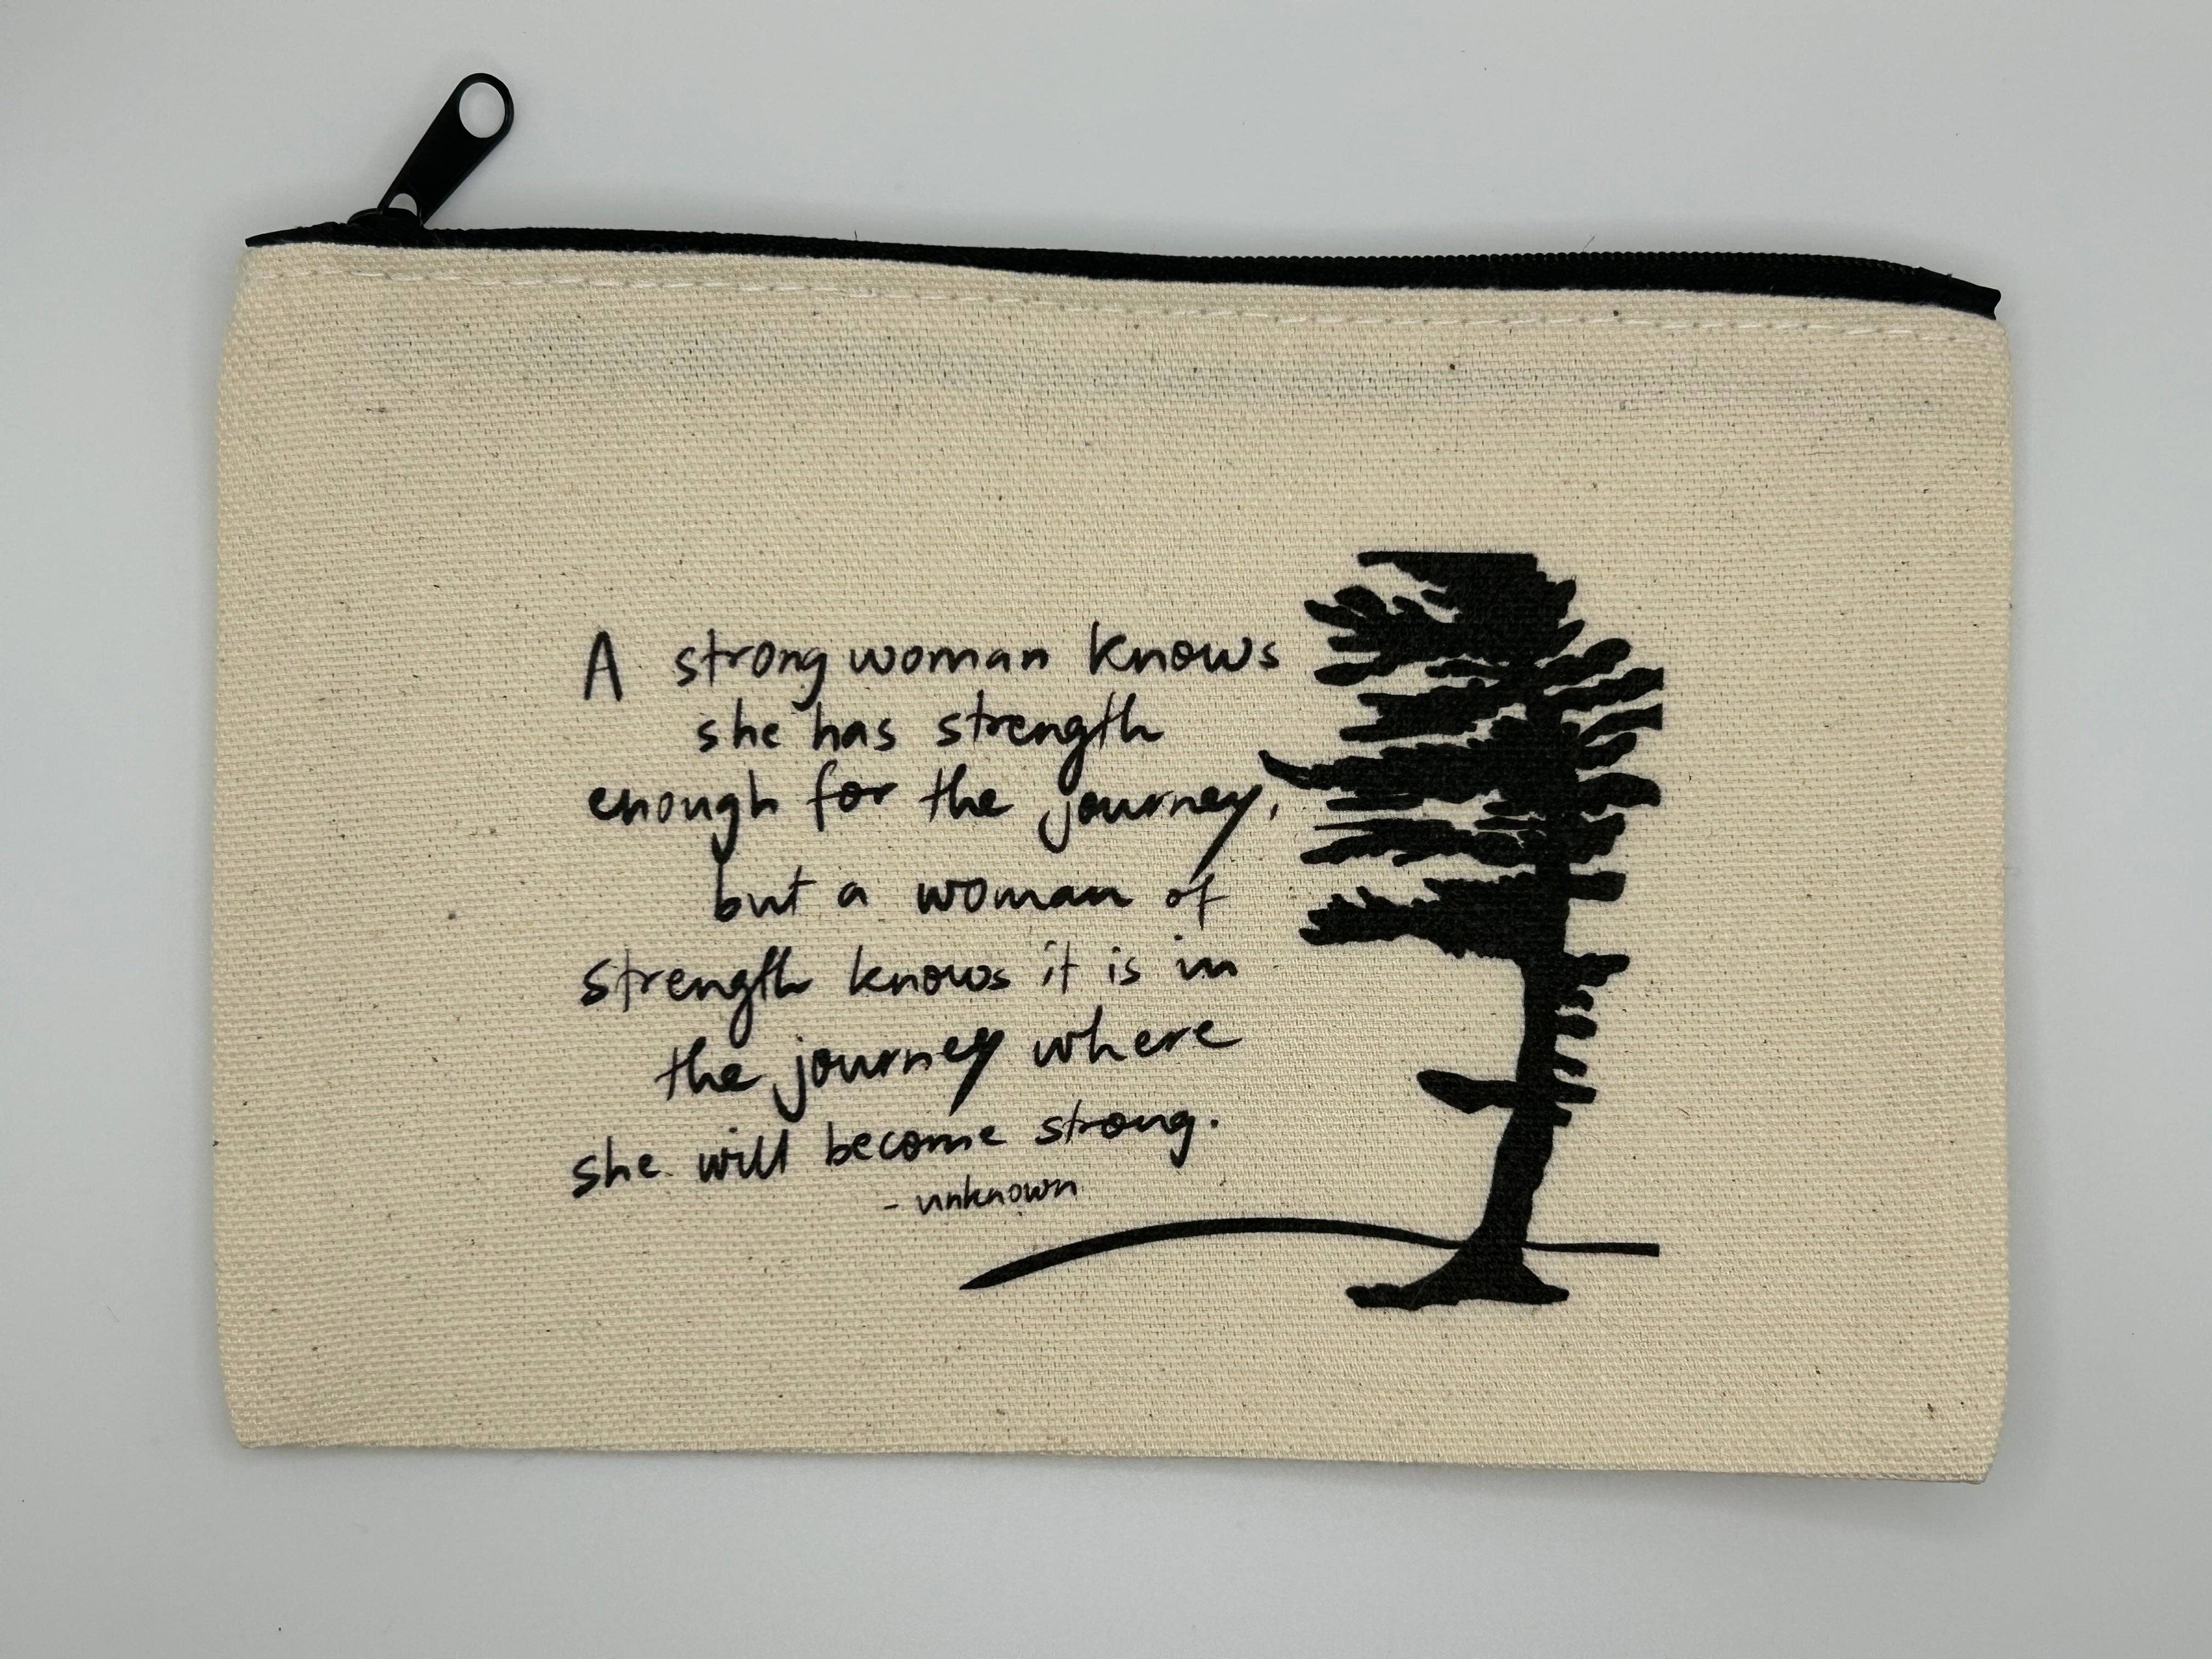 A strong woman knows
she has strength
enough for the journey,
but a woman of
strength knows it is in
the journey where
she will become strong.
- unknown